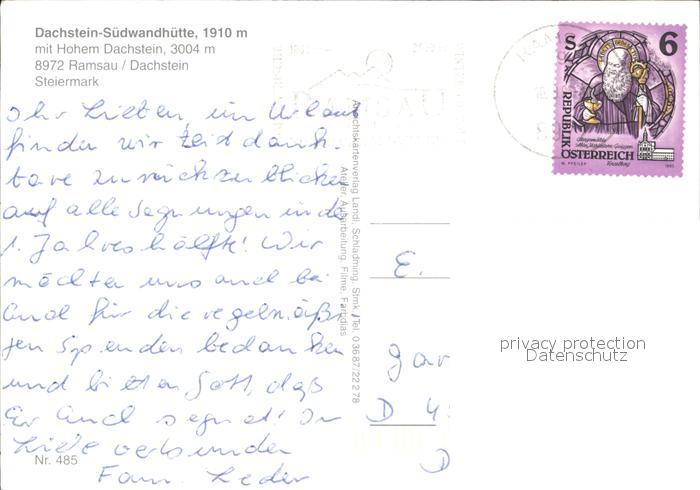 Dachstein-Südwandhütte, 1910 m
mit Hohem Dachstein, 3004 m
8972 Ramsau / Dachstein
Steiermark
Ihr Lieben, im Urlaub
finden wir Zeit dank-
bare zurückzublicken
auf alle Segnungen in der
1. Jahreshälfte! Wir
möchten uns auch bei
Euch für die regelmäßi-
gen Spenden bedanken
und bitten Gott, daß
Er Euch segnet! In
Liebe verbunden
Fam. Leder
Nr. 485
Ansichtskartenverlag Landl, Schladming, Stmk., Tel. 0 36 87/22 2 78
Atelier, Ausarbeitung, Filme, Farbdias
RAMSAU
S 6
REPUBLIK
ÖSTERREICH
E.
Gar
D 4
D
privacy protection
Datenschutz